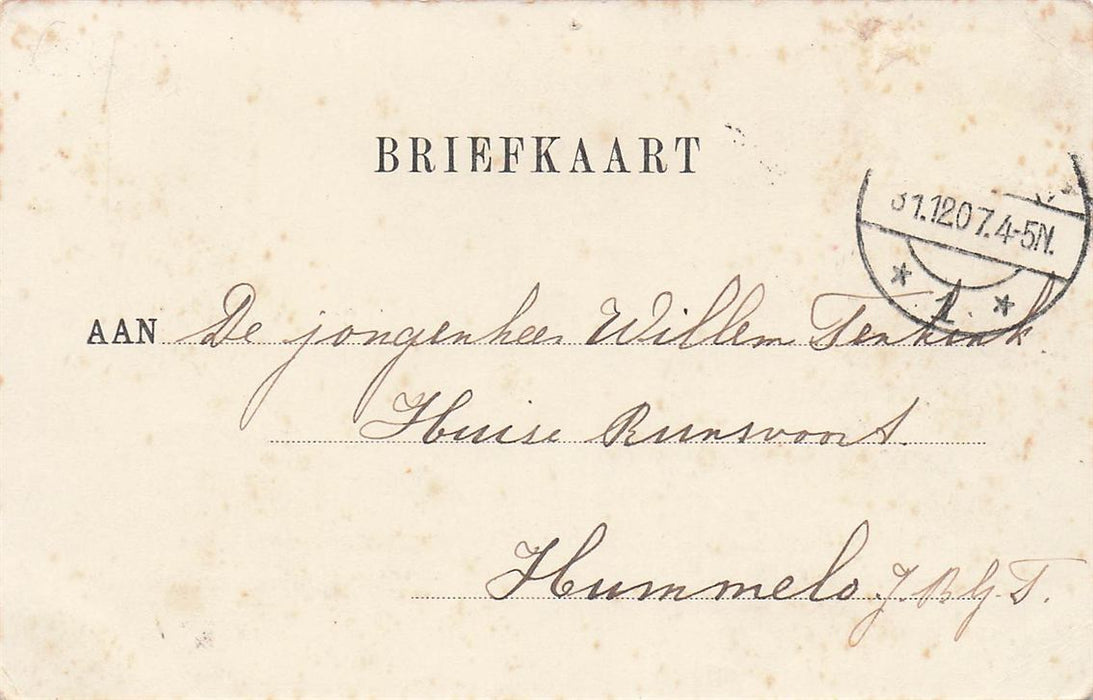 BRIEFKAART
31.12.07.4-5N.
1
AAN De jongenheer Willem Tenkink
Huise Runsvoort.
Hummelo. J. B. G. T.